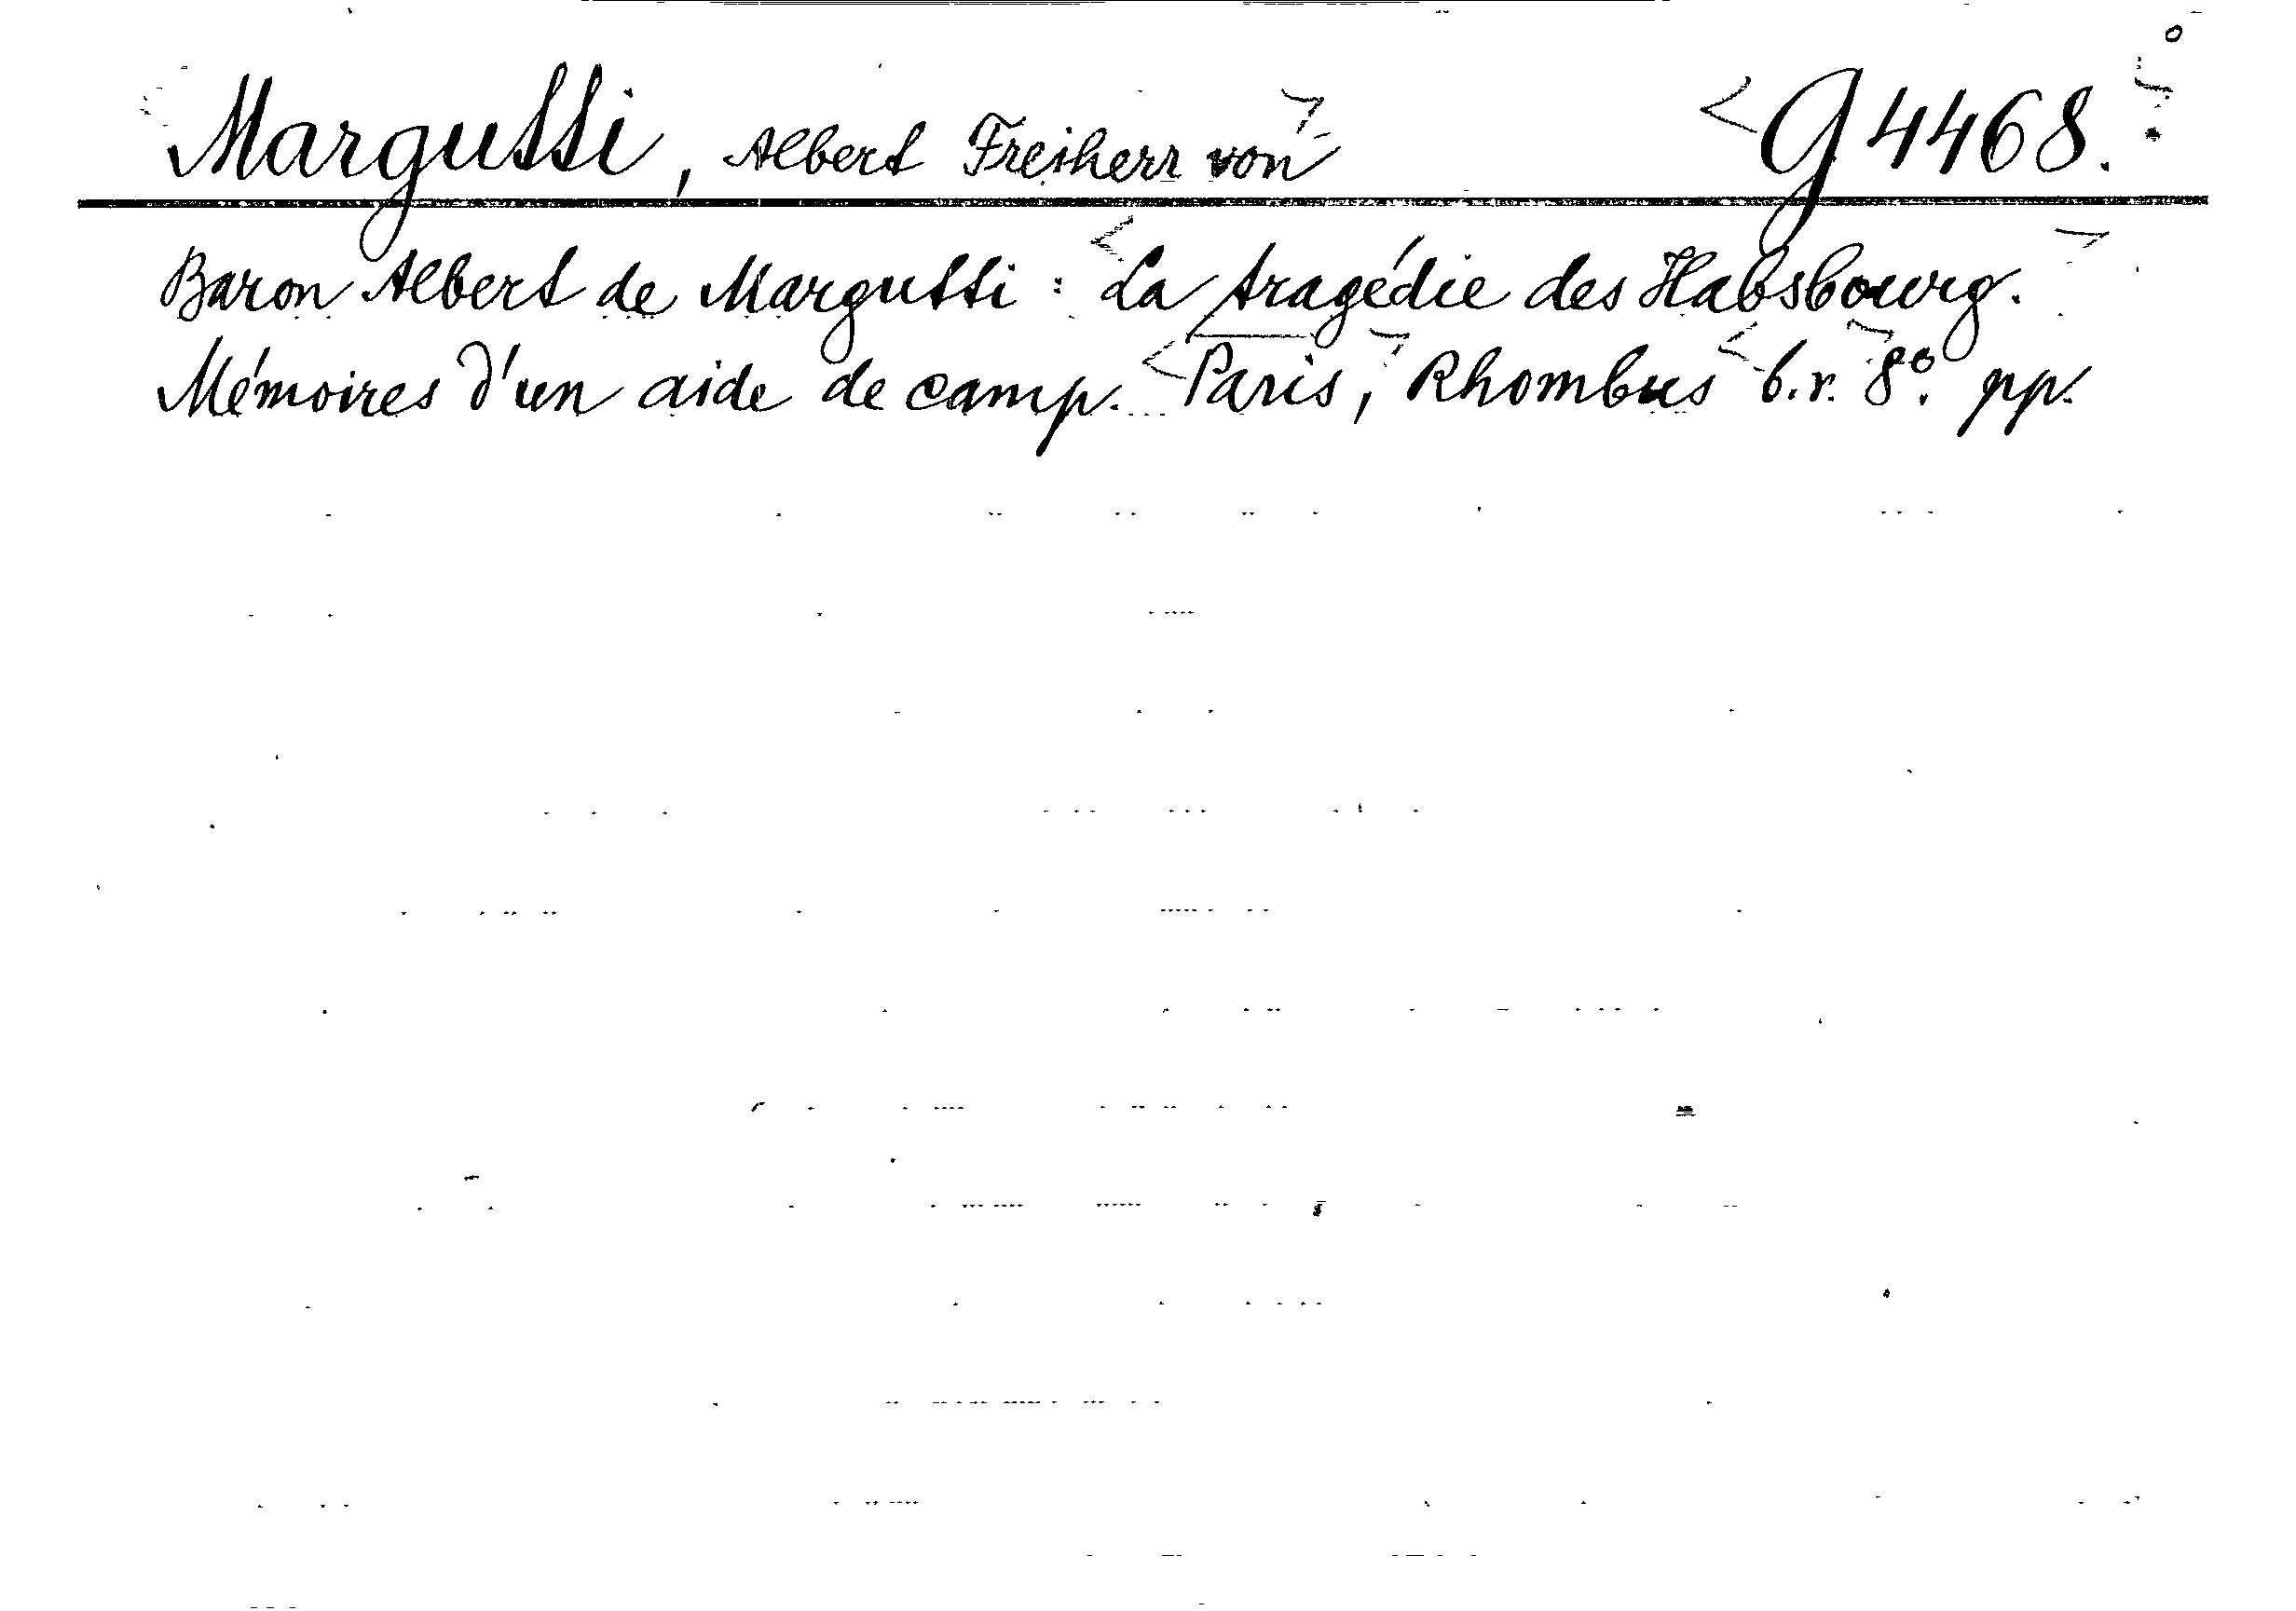 Margutti, Albert Freiherr von G 4468.
Baron Albert de Margutti : La tragédie des Habsbourg.
Mémoires d'un aide de camp. Paris, Rhombus b.r. 8°. pp.